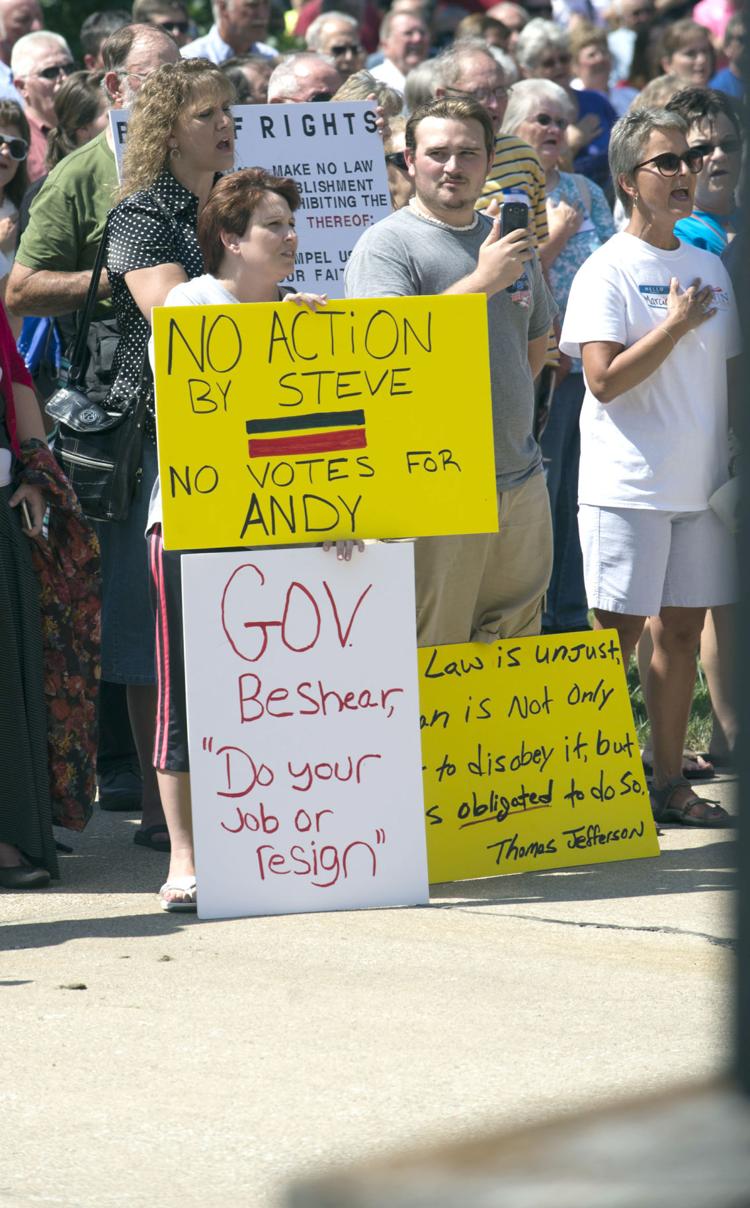 F RIGHTS
MAKE NO LAW
BLISHMENT
HIBITING THE
THEREOF:
MPEL US
UR FAIT
NO ACTION
BY STEVE
NO VOTES FOR
ANDY
GOV.
Beshear,
"Do your
job or
resign"
Law is unjust,
an is Not Only
to disobey it, but
s obligated to do so.
Thomas Jefferson
HELLO